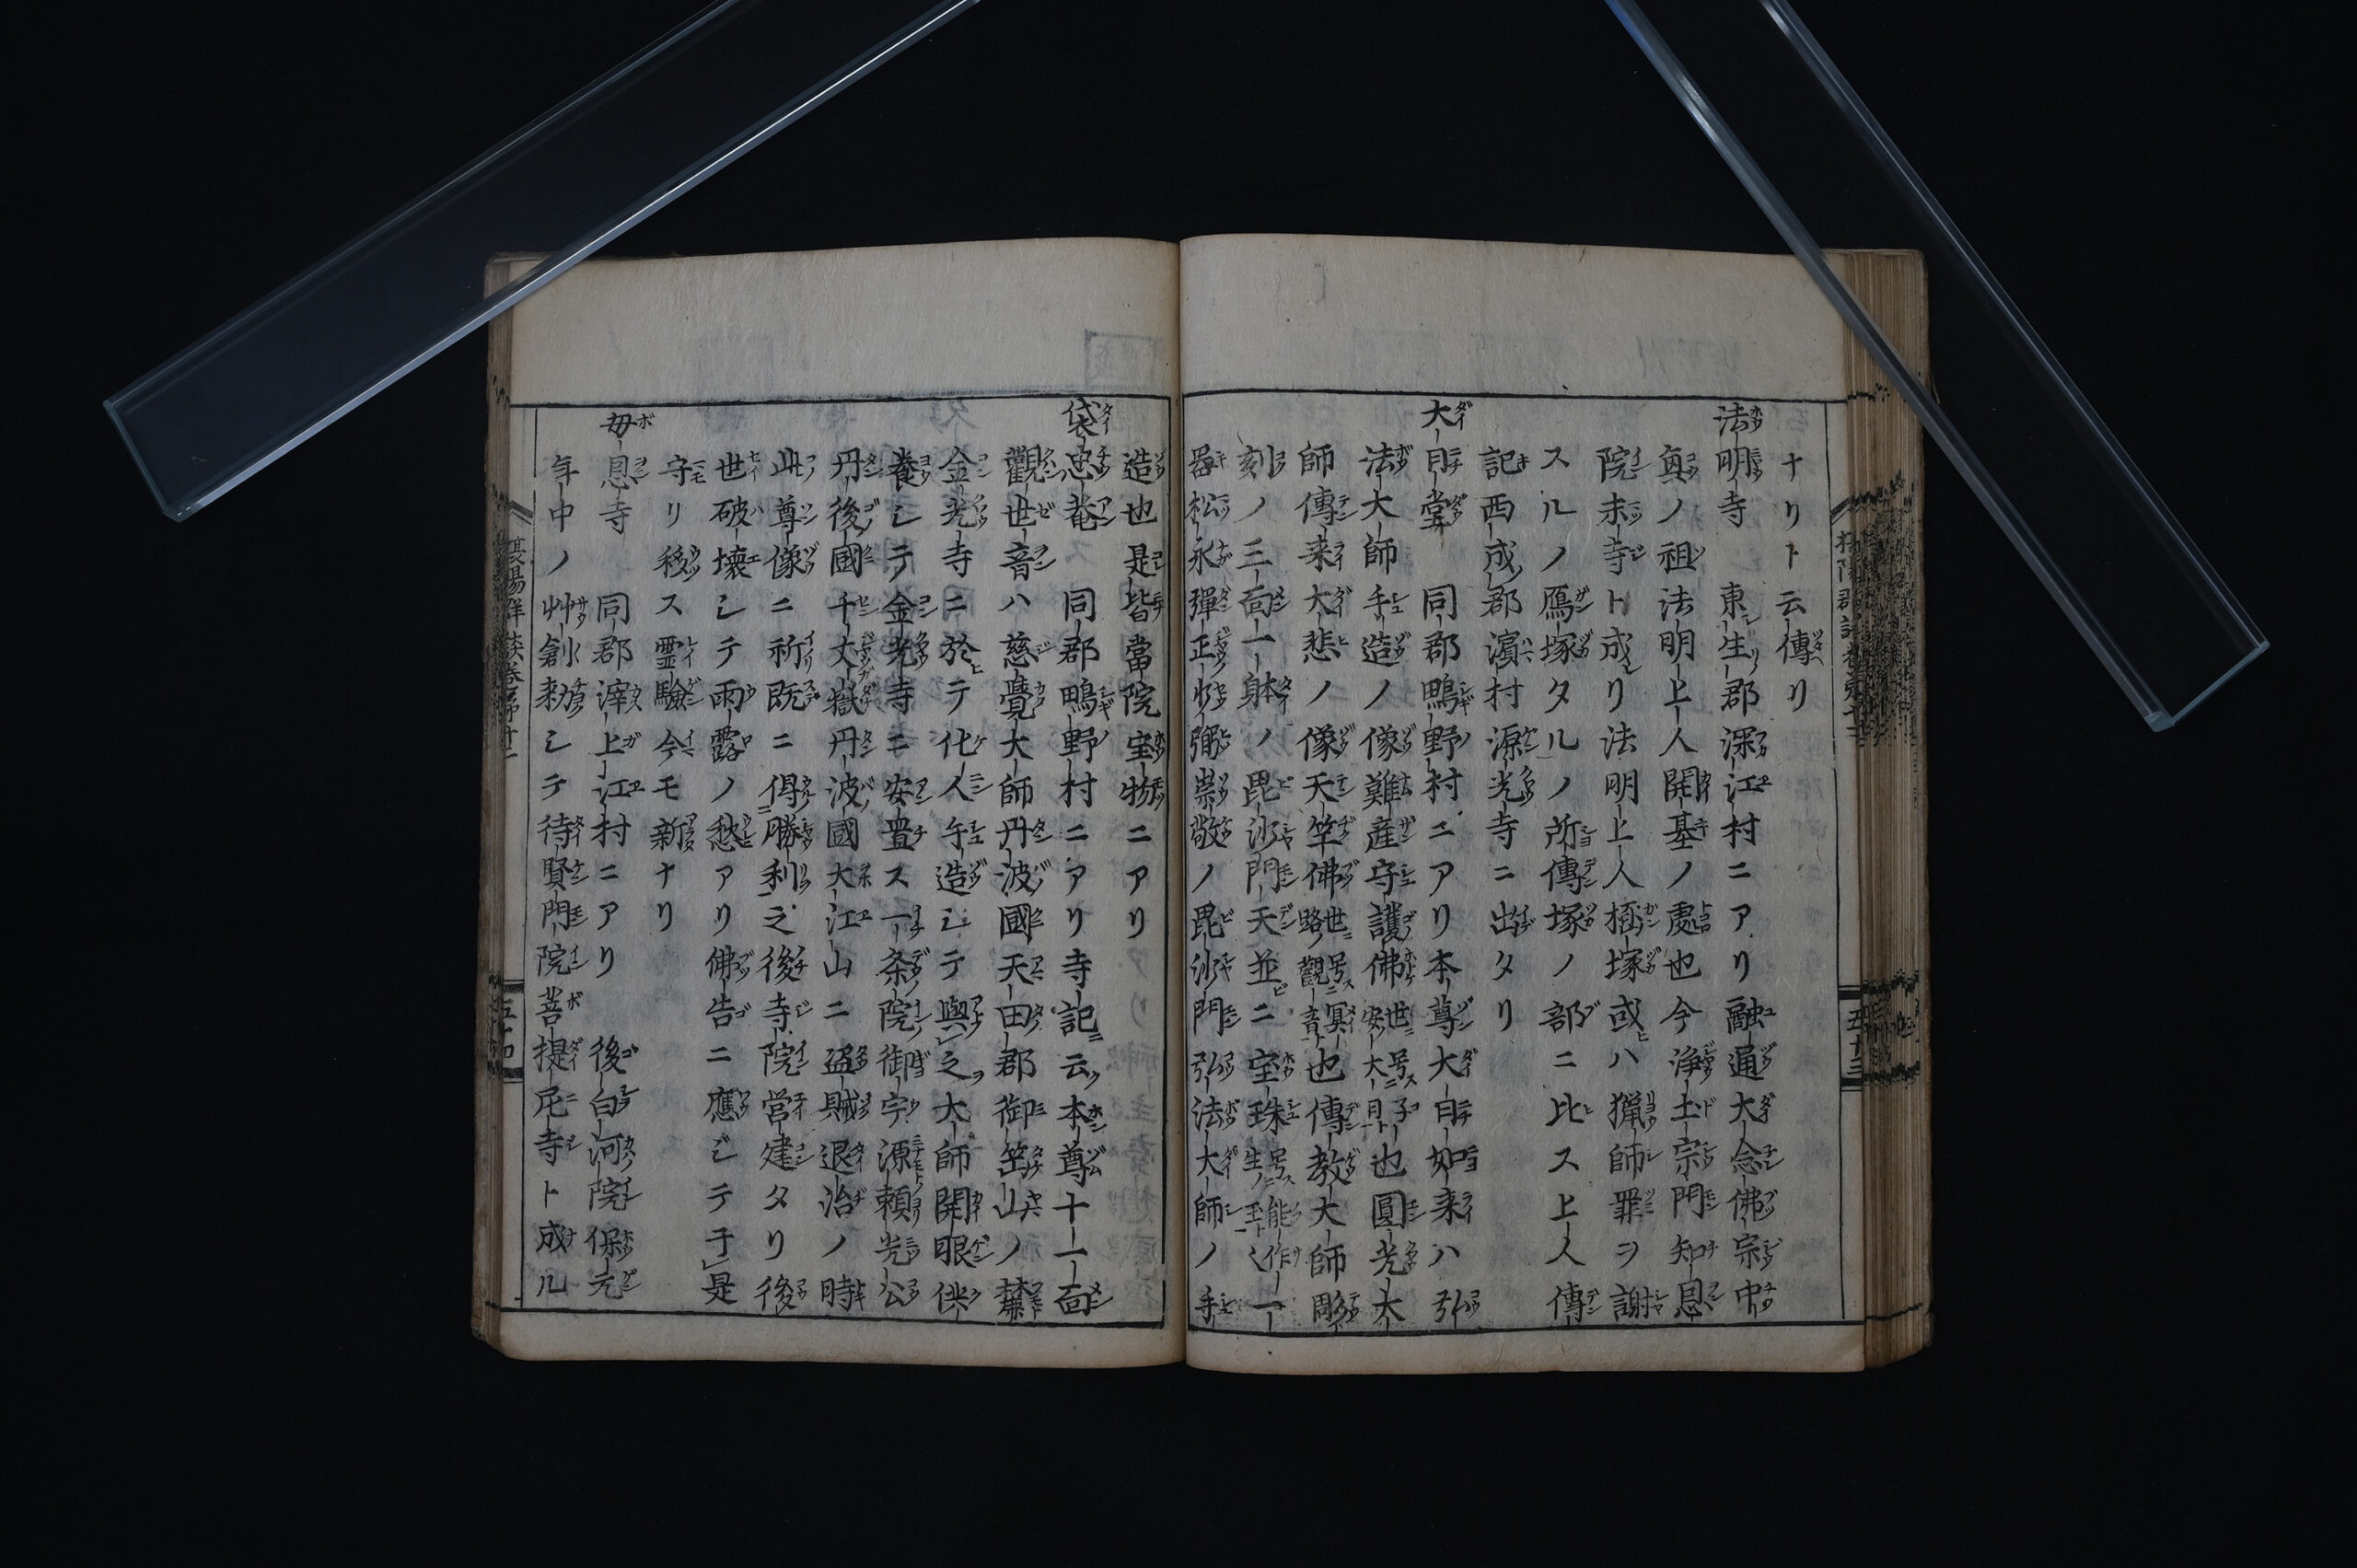 ナリト云傳リ
法明寺 東生郡深江村ニアリ融通大念佛宗中
奥ノ祖法明上人開基ノ處也今浄土宗門知恩
院末寺ト成リ法明上人 塚或ハ獵師罪ヲ謝
スルノ鴈塚タルノ所傳塚ノ部ニ比ス上人傳
記西成郡濱村源光寺ニ出タリ
大日堂 同郡鴫野村ニアリ本尊大日如来ハ弘
法大師手造ノ像難産守護佛世ニ号ス子安ノ大日ト也圓光大
師傳来大悲ノ像天竺佛世ニ号ス冥路ノ觀音ト也傳教大師彫
刻ノ三面一躰ノ毘沙門天並ニ宝珠号ス能作生ノ玉ト一
器松永彈正少弼崇敬ノ毘沙門弘法大師ノ手
造也是皆當院宝物ニアリ
袋忠菴 同郡鴫野村ニアリ寺記云本尊十一面
觀世音ハ慈覺大師丹波國天田郡御笠山ノ麓
金光寺ニ於テ化人手造シテ與之大師開眼供
養シテ金光寺ニ安置ス一条院御宇源頼光公
丹後國千丈嶽丹波國大江山ニ盗賊退治ノ時
此尊像ニ祈既ニ得勝利之後寺院營建タリ後
世破壊シテ雨露ノ愁アリ佛告ニ應シテ于是
守リ移ス霊驗今モ新ナリ
毋恩寺 同郡滓上江村ニアリ 後白河院保元
年中ノ艸創 シテ待賢門院菩提尼寺ト成ル
五十三
五十四